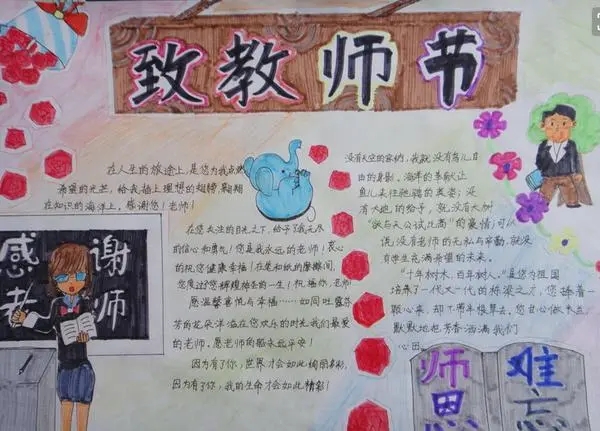 致教师节
在人生的旅途上,是您为我点燃
希望的光芒,给我插上理想的翅膀,翱翔
在知识的海洋上。感谢您!老师!
在您关注的目光之下,给予了我无尽
的信心和勇气!您是我永远的老师!衷心
的祝您健康幸福!在笔和纸的摩擦间,
您度过了您辉煌神圣的一生!祝福你,老师!
愿温馨喜悦与幸福……如同吐露芬
芳的花朵洋溢在您欢乐的时光我们最爱
的老师,愿老师的脸永远平安!
因为有了你,世界才会如此绚丽多彩,
因为有了你,我的生命才会如此精彩!
没有天空的容纳,我就没有鸟儿自
由的身影。海洋的奉献让
鱼儿来往驰骋的英姿;没
有大地的给予,就没有大树
"欲与天公试比高"的豪情;可以
说,没有老师的无私与帮助,就没
有学生充满希望的未来。
"十年树木,百年树人。"是您为祖国
培养了一代又一代的栋梁之才,您捧着一
颗心来,却不带半根草去,您甘心做
默默地把芳香洒满我们
心田。
感谢
老师
师恩
难忘